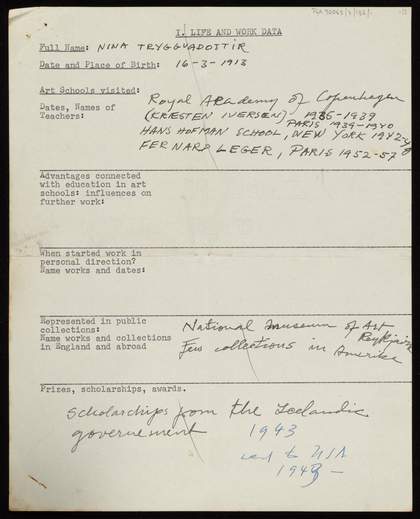 I. LIFE AND WORK DATA
Full Name: NINA TRYGGVADOTTIR
Date and Place of Birth: 16-3-1913
Art Schools visited:
Dates, Names of
Teachers:
Royal Academy of Copenhagen
(KRÆSTEN IVERSEN) 1935-1939
PARIS 1939-1940
HANS HOFMAN SCHOOL, NEW YORK 1942-
FERNARD LEGER, PARIS 1952-57
Advantages connected
with education in art
schools: influences on
further work:
When started work in
personal direction?
Name works and dates:
Represented in public
collections:
Name works and collections
in England and abroad
National Museum of Art
Reykjavik
Few collections in Amerika
Prizes, scholarships, awards.
Scholarships from the Icelandic
governement 1943
went to USA
1943 -